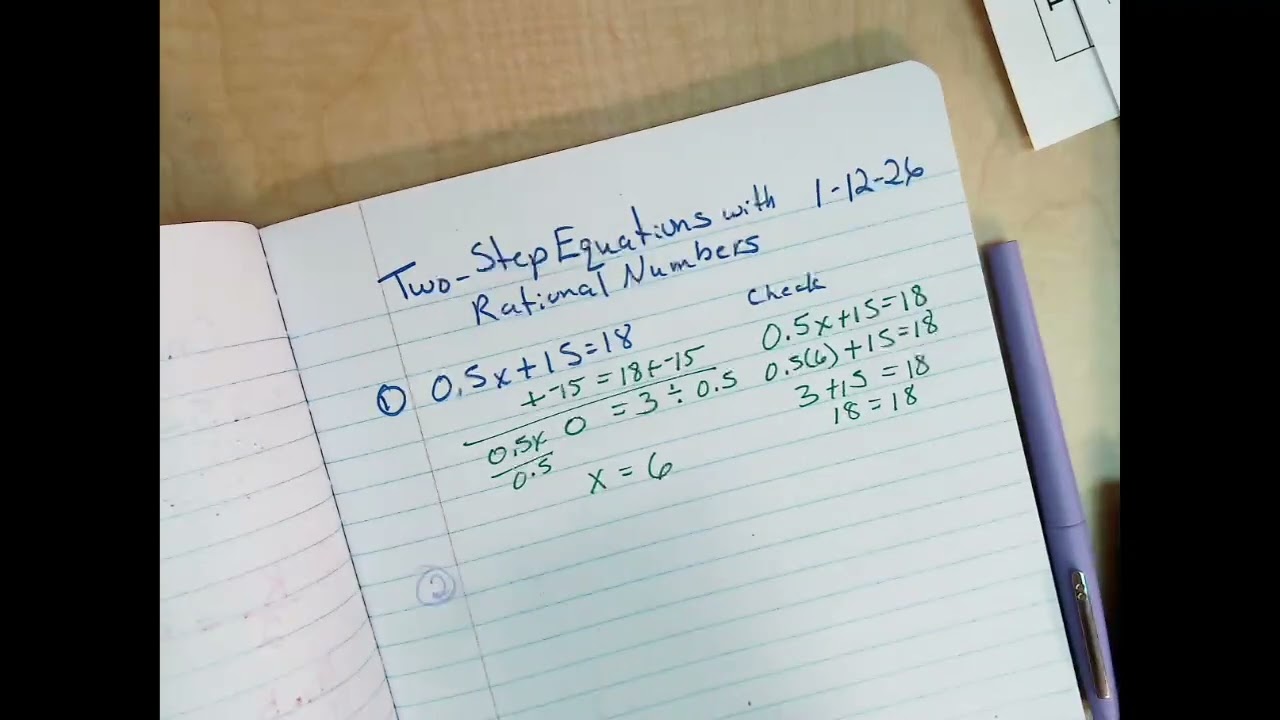 Two-Step Equations with 1-12-26
Rational Numbers
① 0.5x+15=18
+-15 = 18+-15
0.5x 0 = 3 ÷ 0.5
0.5
x = 6
Check
0.5x+15=18
0.5(6)+15=18
3+15 = 18
18 = 18
②